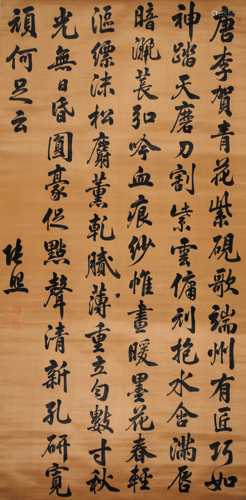 唐李賀青花紫硯歌端州有匠巧如
神踏天磨刀割紫雲傭刓抱水含滿脣
暗灑萇弘吟血痕紗惟晝暖墨花春輕
漚縹沫松麝薰乾膩薄重立勻數寸秋
光無日昏圓豪促點聲清新孔研寬
頑何足云
張照